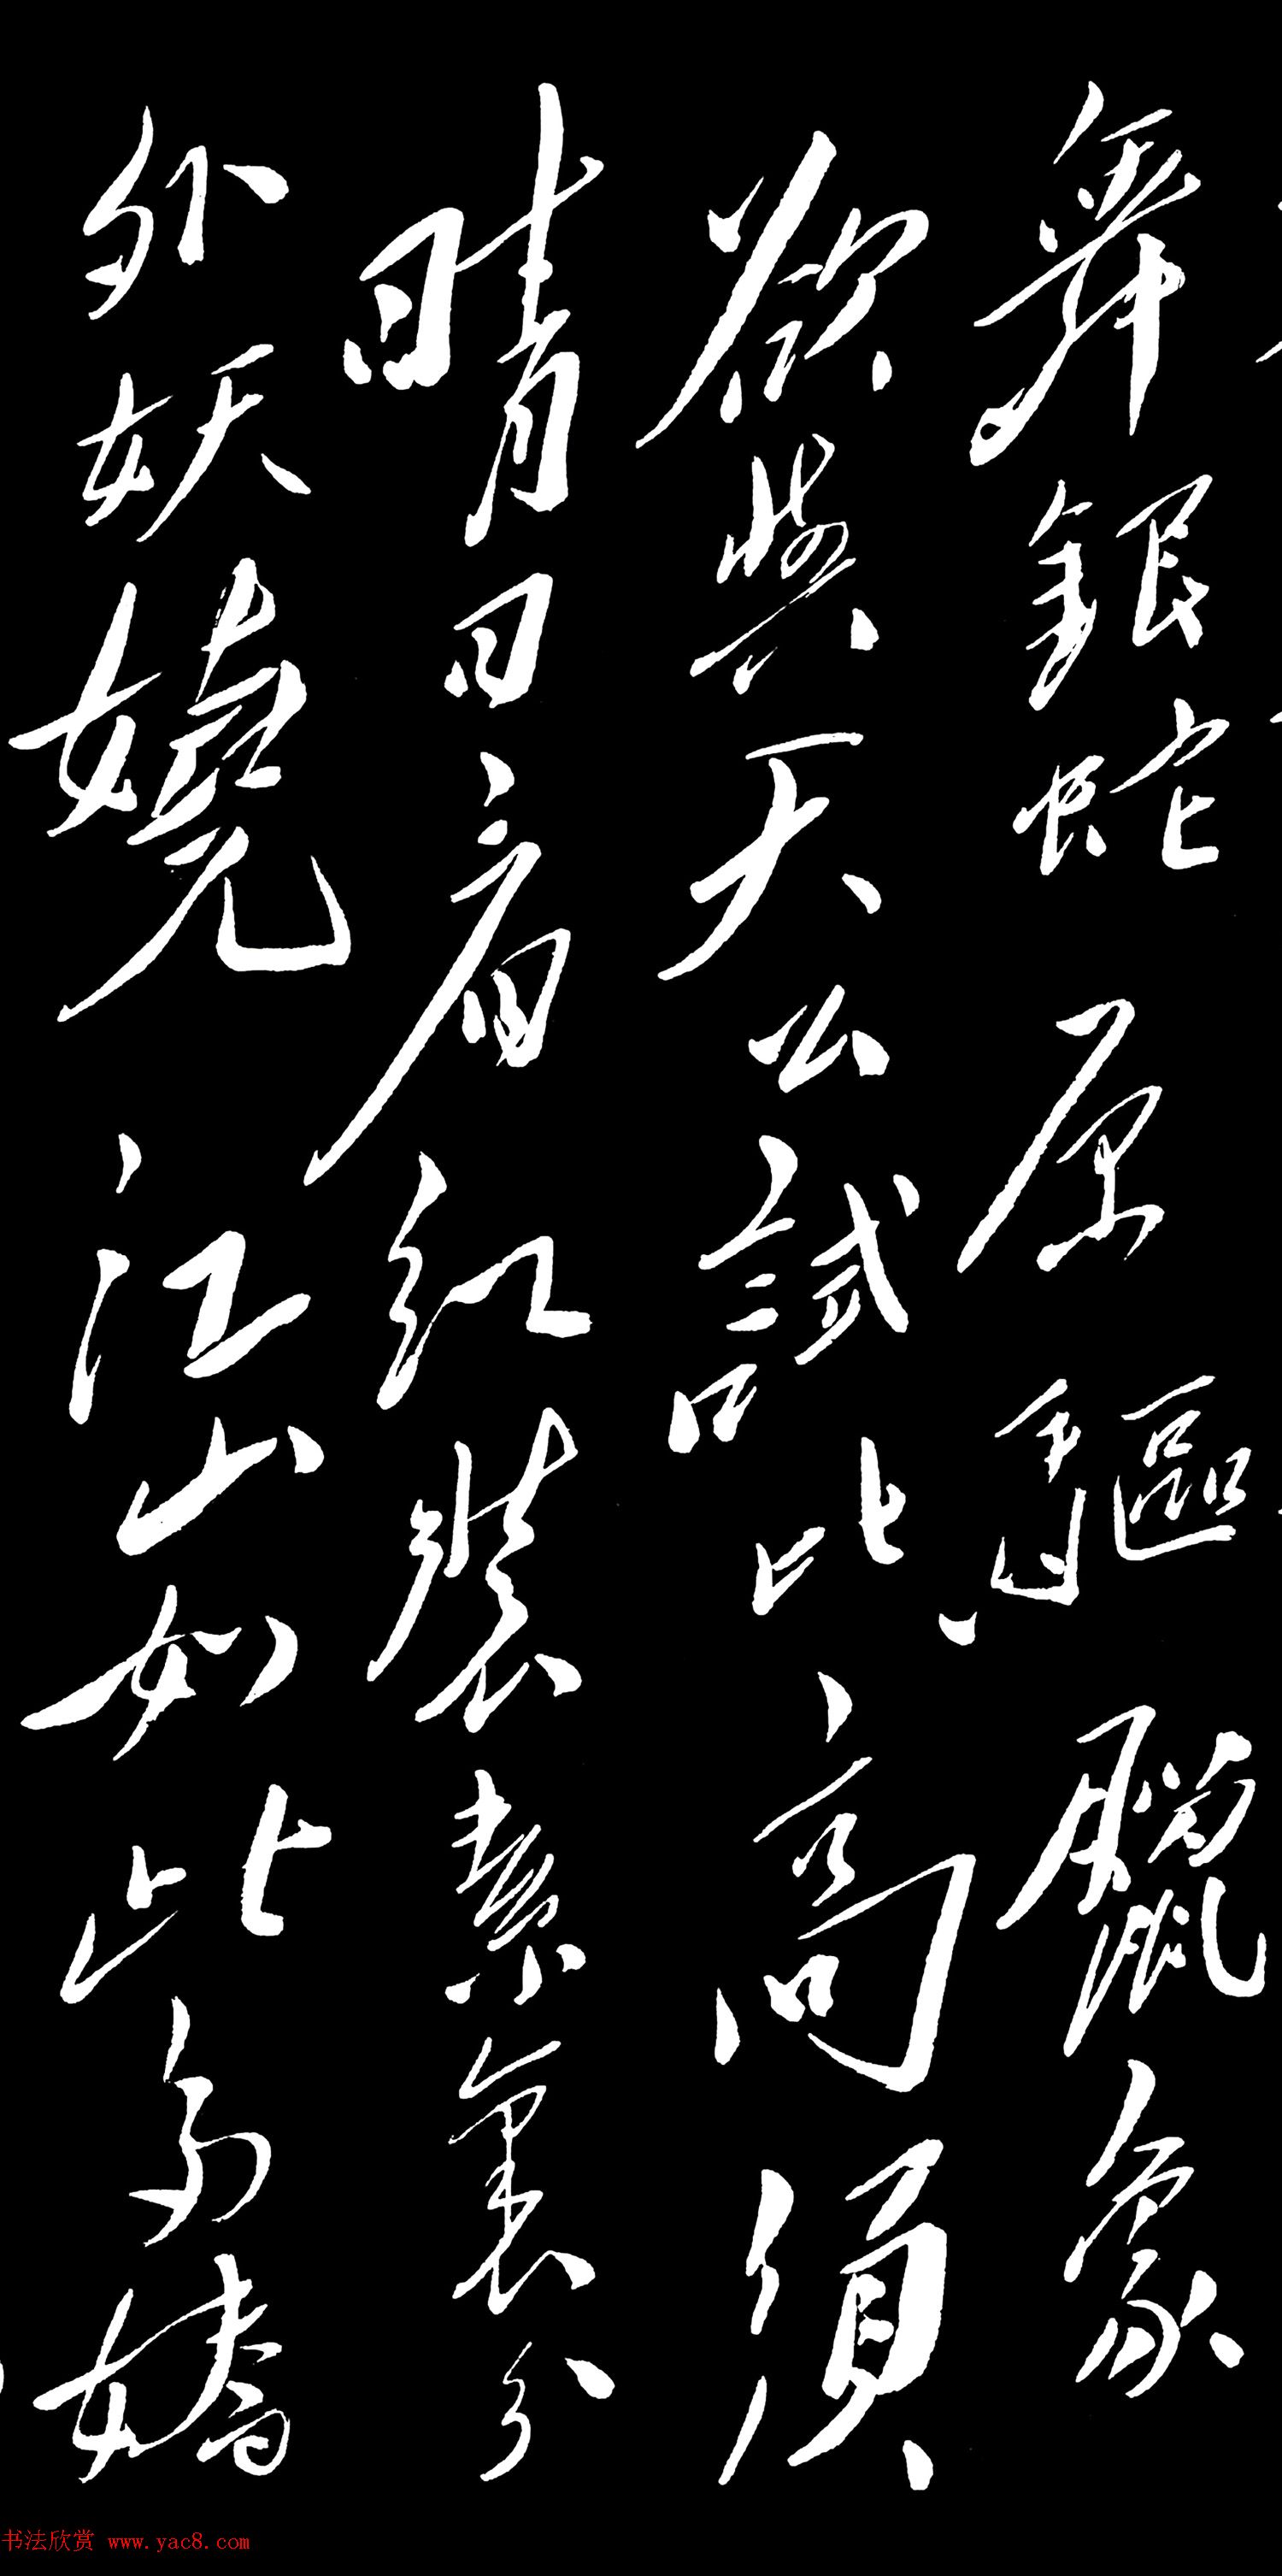 舞銀蛇原驅臘象
欲與天公試比高須
晴日看紅裝素裹分
外妖嬈江山如此多嬌
书法欣赏 www.yac8.com